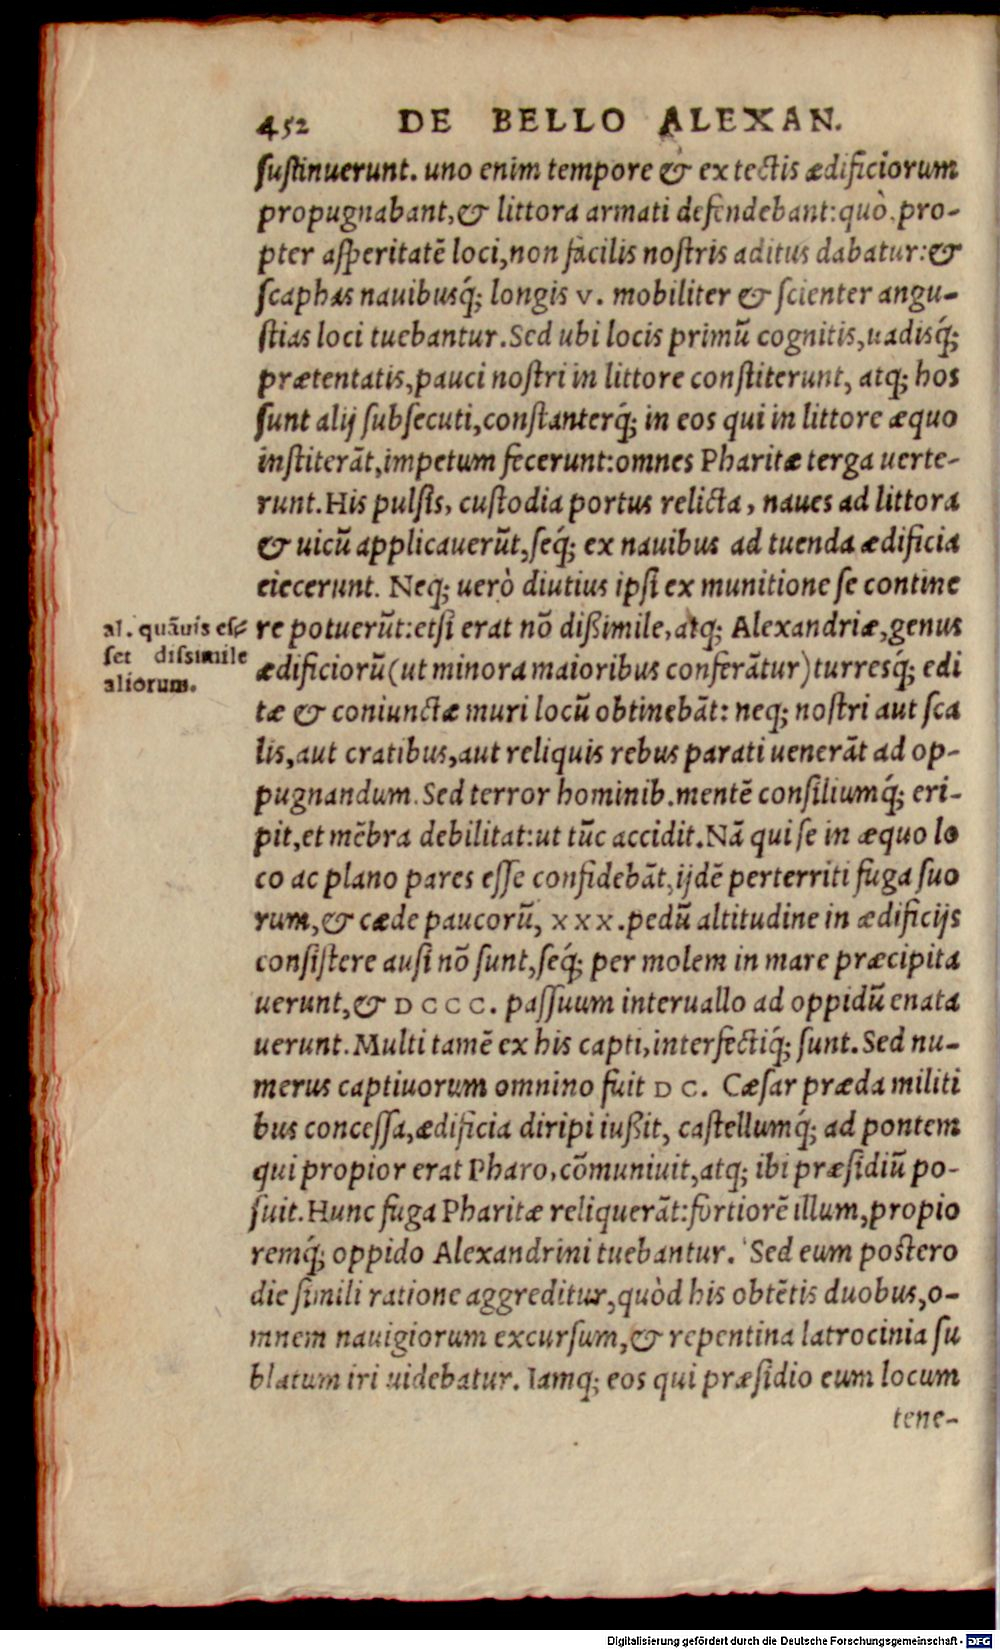 452 DE BELLO ALEXAN.
ſuſtinuerunt. uno enim tempore & ex tectis ædificiorum
propugnabant, & littora armati defendebant: quò pro-
pter aſperitatē loci, non facilis noſtris aditus dabatur: &
ſcaphas nauibusq́; longis V. mobiliter & ſcienter angu-
ſtias loci tuebantur. Sed ubi locis primū cognitis, uadisq́;
prætentatis, pauci noſtri in littore conſtiterunt, atq; hos
ſunt alij ſubſecuti, conſtanterq́; in eos qui in littore æquo
inſtiterāt, impetum fecerunt: omnes Pharitæ terga uerte-
runt. His pulſis, cuſtodia portus relicta, naues ad littora
& uicū applicauerūt, ſeq́; ex nauibus ad tuenda ædificia
eiecerunt. Neq; uerò diutius ipſi ex munitione ſe contine
al. quāuis eſ-
ſet diſsimile
aliorum.
re potuerūt: etſi erat nō dißimile, atq; Alexandriæ, genus
ædificiorū (ut minora maioribus conferātur) turresq́; edi
tæ & coniunctæ muri locū obtinebāt: neq; noſtri aut ſca
lis, aut cratibus, aut reliquis rebus parati uenerāt ad op-
pugnandum. Sed terror hominib. mentē conſiliumq́; eri-
pit, et mēbra debilitat: ut tūc accidit. Nā qui ſe in æquo lo
co ac plano pares eſſe confidebāt, ijdē perterriti fuga ſuo
rum, & cæde paucorū, XXX. pedū altitudine in ædificijs
conſiſtere auſi nō ſunt, ſeq́; per molem in mare præcipita
uerunt, & DCCC. paſſuum interuallo ad oppidū enata
uerunt. Multi tamē ex his capti, interfectiq́; ſunt. Sed nu-
merus captiuorum omnino fuit DC. Cæſar præda militi
bus conceſſa, ædificia diripi iußit, caſtellumq́; ad pontem
qui propior erat Pharo, cōmuniuit, atq; ibi præſidiū po-
ſuit. Hunc fuga Pharitæ reliquerāt: fortiorē illum, propio
remq́; oppido Alexandrini tuebantur. Sed eum poſtero
die ſimili ratione aggreditur, quòd his obtētis duobus, o-
mnem nauigiorum excurſum, & repentina latrocinia ſu
blatum iri uidebatur. Iamq; eos qui præſidio eum locum
tene-
Digitalisierung gefördert durch die Deutsche Forschungsgemeinschaft - DFG